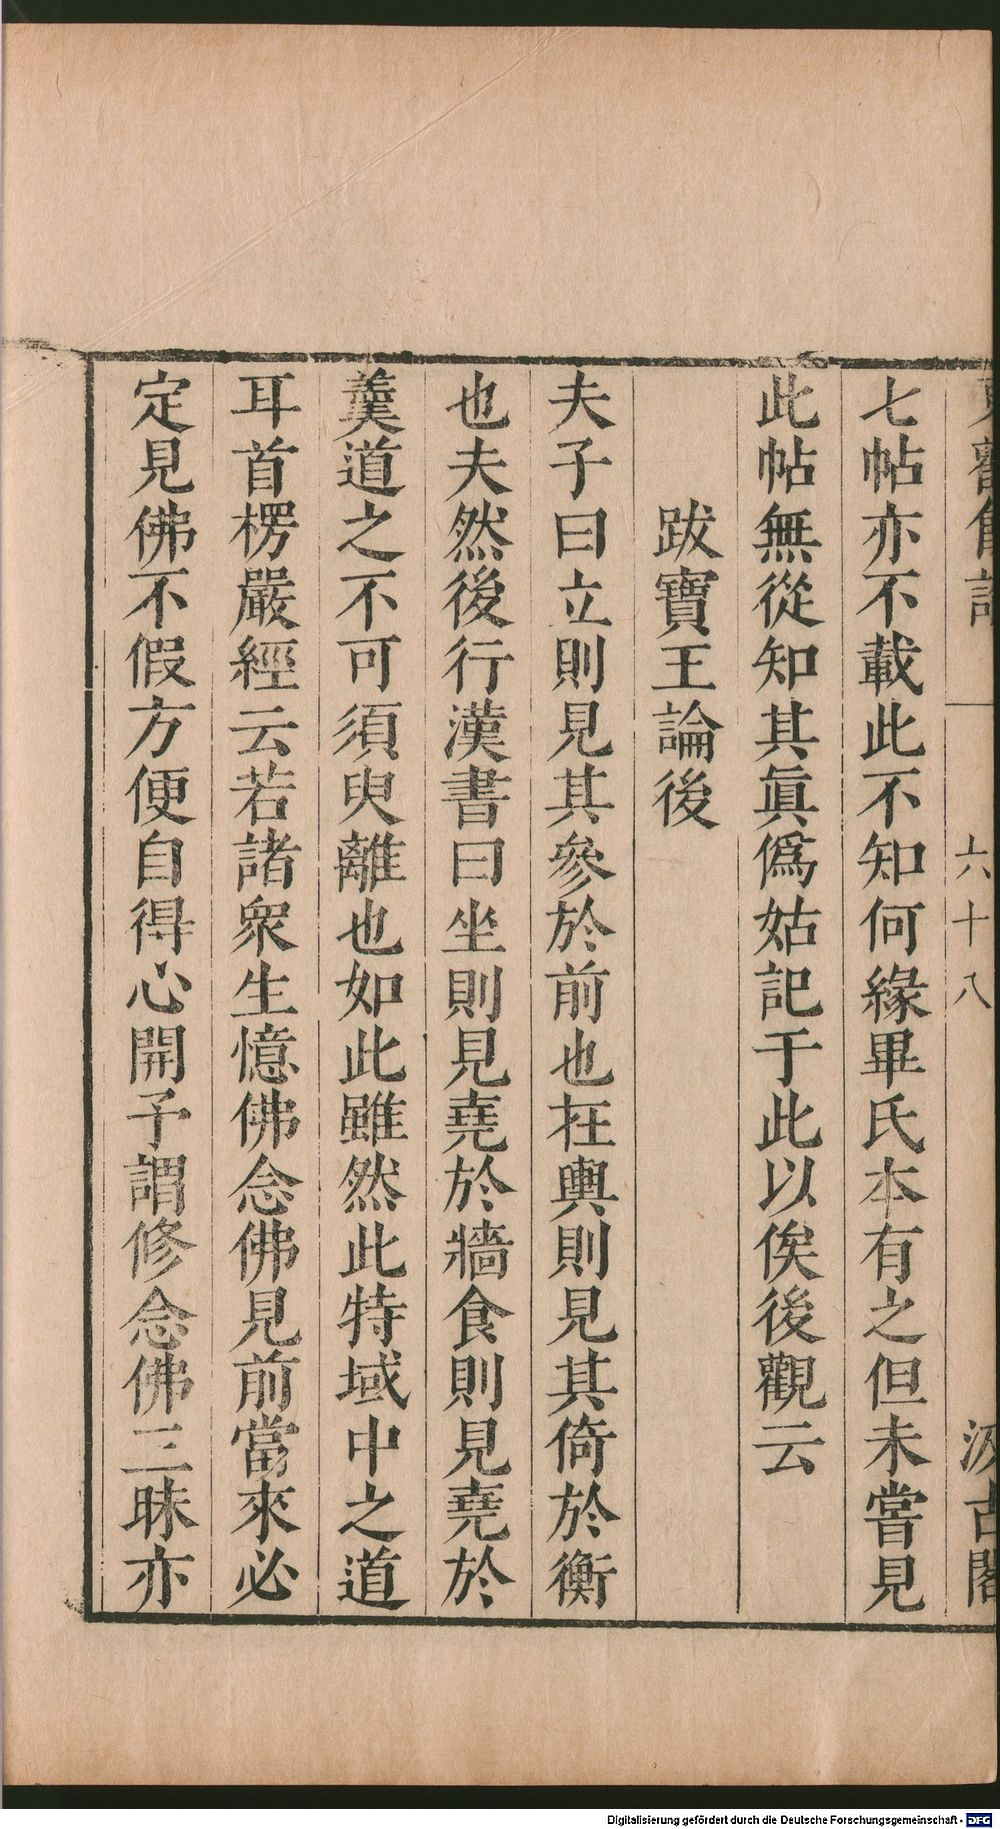 六十八
汲古閣
七帖亦不載此不知何緣畢氏本有之但未嘗見
此帖無從知其眞僞姑記于此以俟後觀云
跋寶王論後
夫子曰立則見其參於前也在輿則見其倚於衡
也夫然後行漢書曰坐則見堯於牆食則見堯於
羹道之不可須臾離也如此雖然此特域中之道
耳首楞嚴經云若諸衆生憶佛念佛見前當來必
定見佛不假方便自得心開予謂修念佛三昧亦
Digitalisierung gefördert durch die Deutsche Forschungsgemeinschaft - DFG